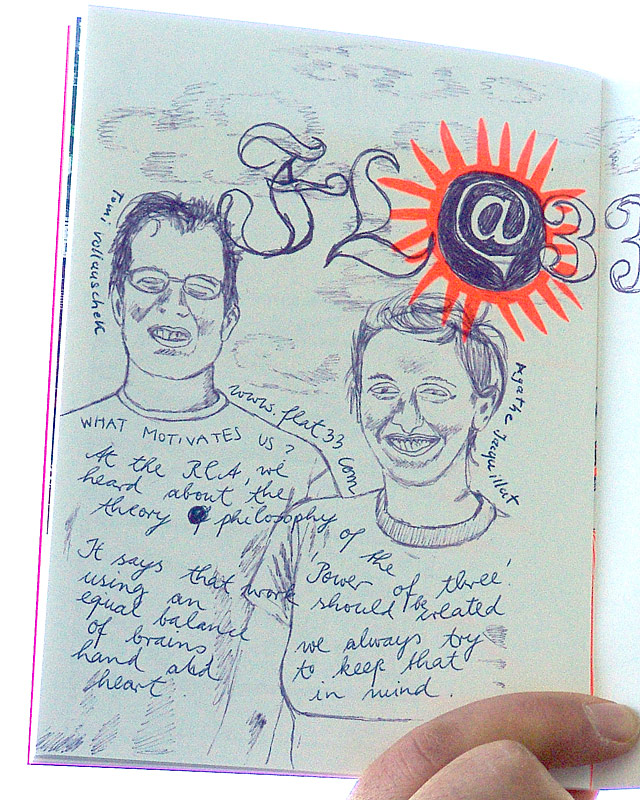 FL@33
3
Tomi Vollauschek
Agathe Jacquillat
www.flat33.com
WHAT MOTIVATES US?
At the RCA, we
heard about the
theory philosophy of the
'Power of three'.
It says that work should be created
using an
equal balance
of brains
hand and
heart.
we always try
to keep that
in mind.